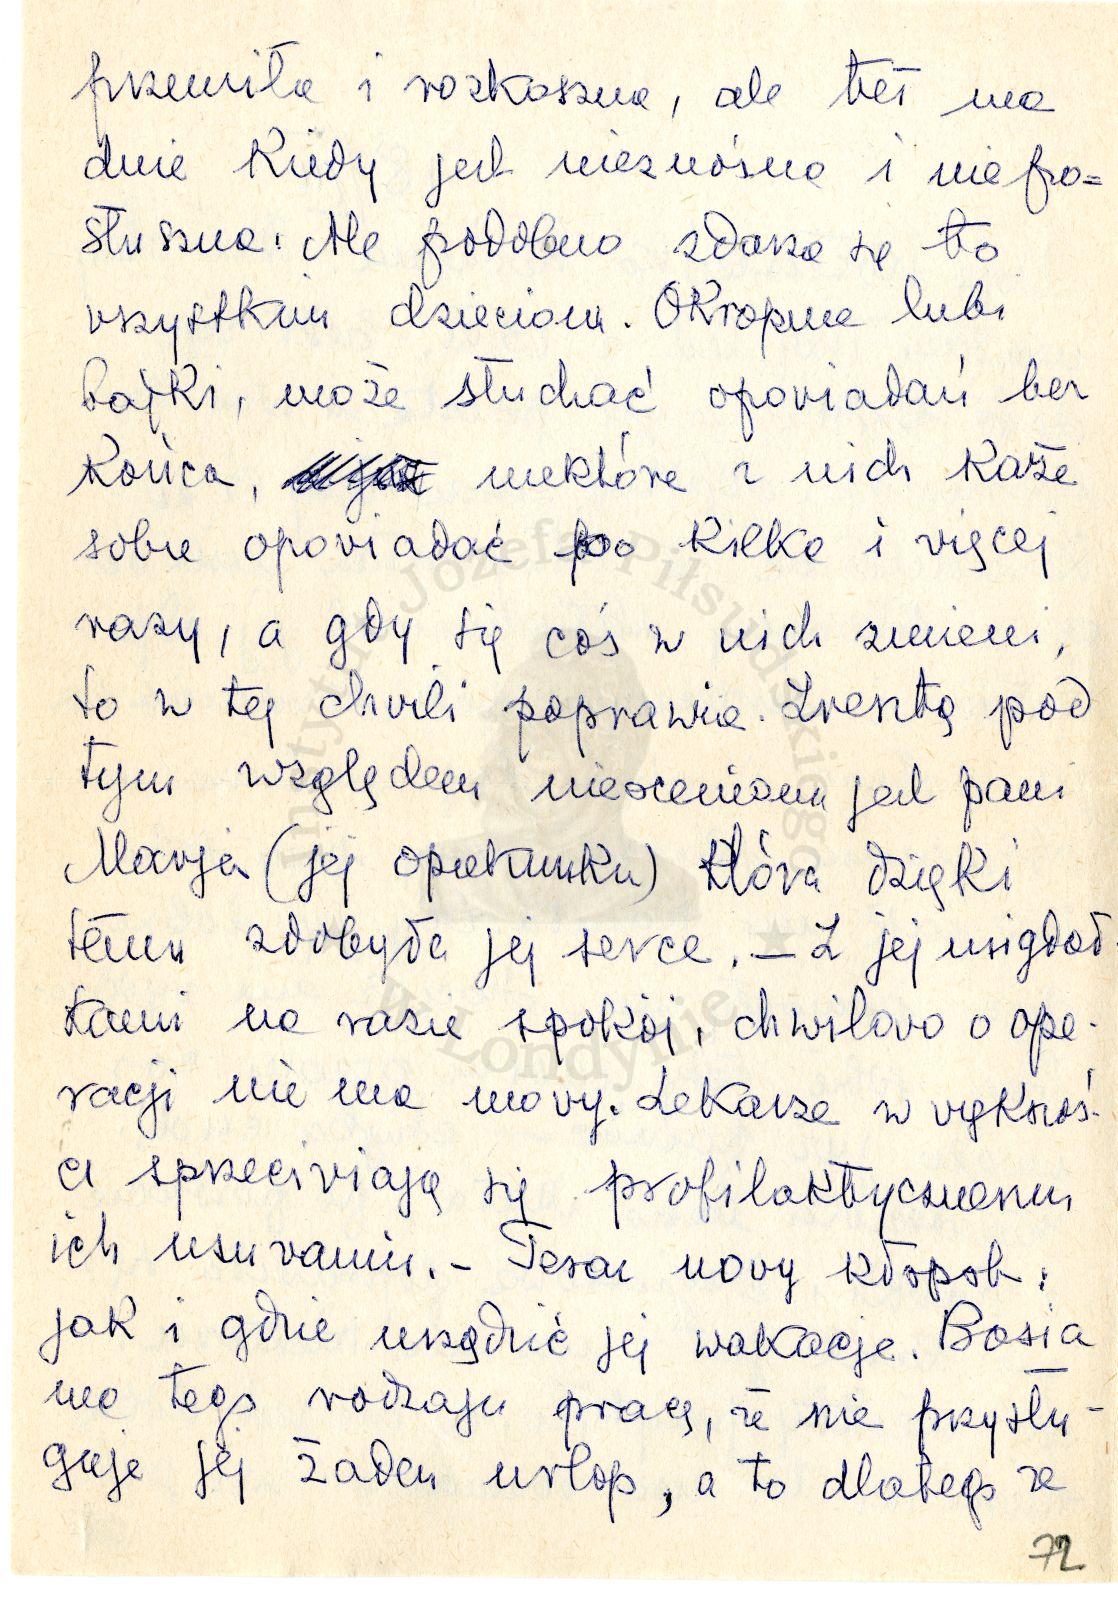 przemiła i rozkoszna, ale też ma
dnie kiedy jest nieznośna i niepo=
słuszna. Ale podobno zdarza się to
wszystkim dzieciom. Okropnie lubi
bajki, może słuchać opowiadań bez
końca, niektóre z nich każe
sobie opowiadać po kilka i więcej
razy, a gdy się coś w nich zmieni,
to w tej chwili poprawia. Zresztą pod
tym względem nieoceniona jest pani
Marja (jej opiekunka) która dzięki
temu zdobyła jej serce. – Z jej migdał-
kami na razie spokój, chwilowo o ope-
racji nie ma mowy. Lekarze w większoś-
ci sprzeciwiają się profilaktycznemu
ich usuwaniu. – Teraz nowy kłopot:
jak i gdzie urządzić jej wakacje. Basia
ma tego rodzaju pracę, że nie przysłu-
guje jej żaden urlop, a to dlatego że
72
Instytut Józefa Piłsudskiego
w Londynie